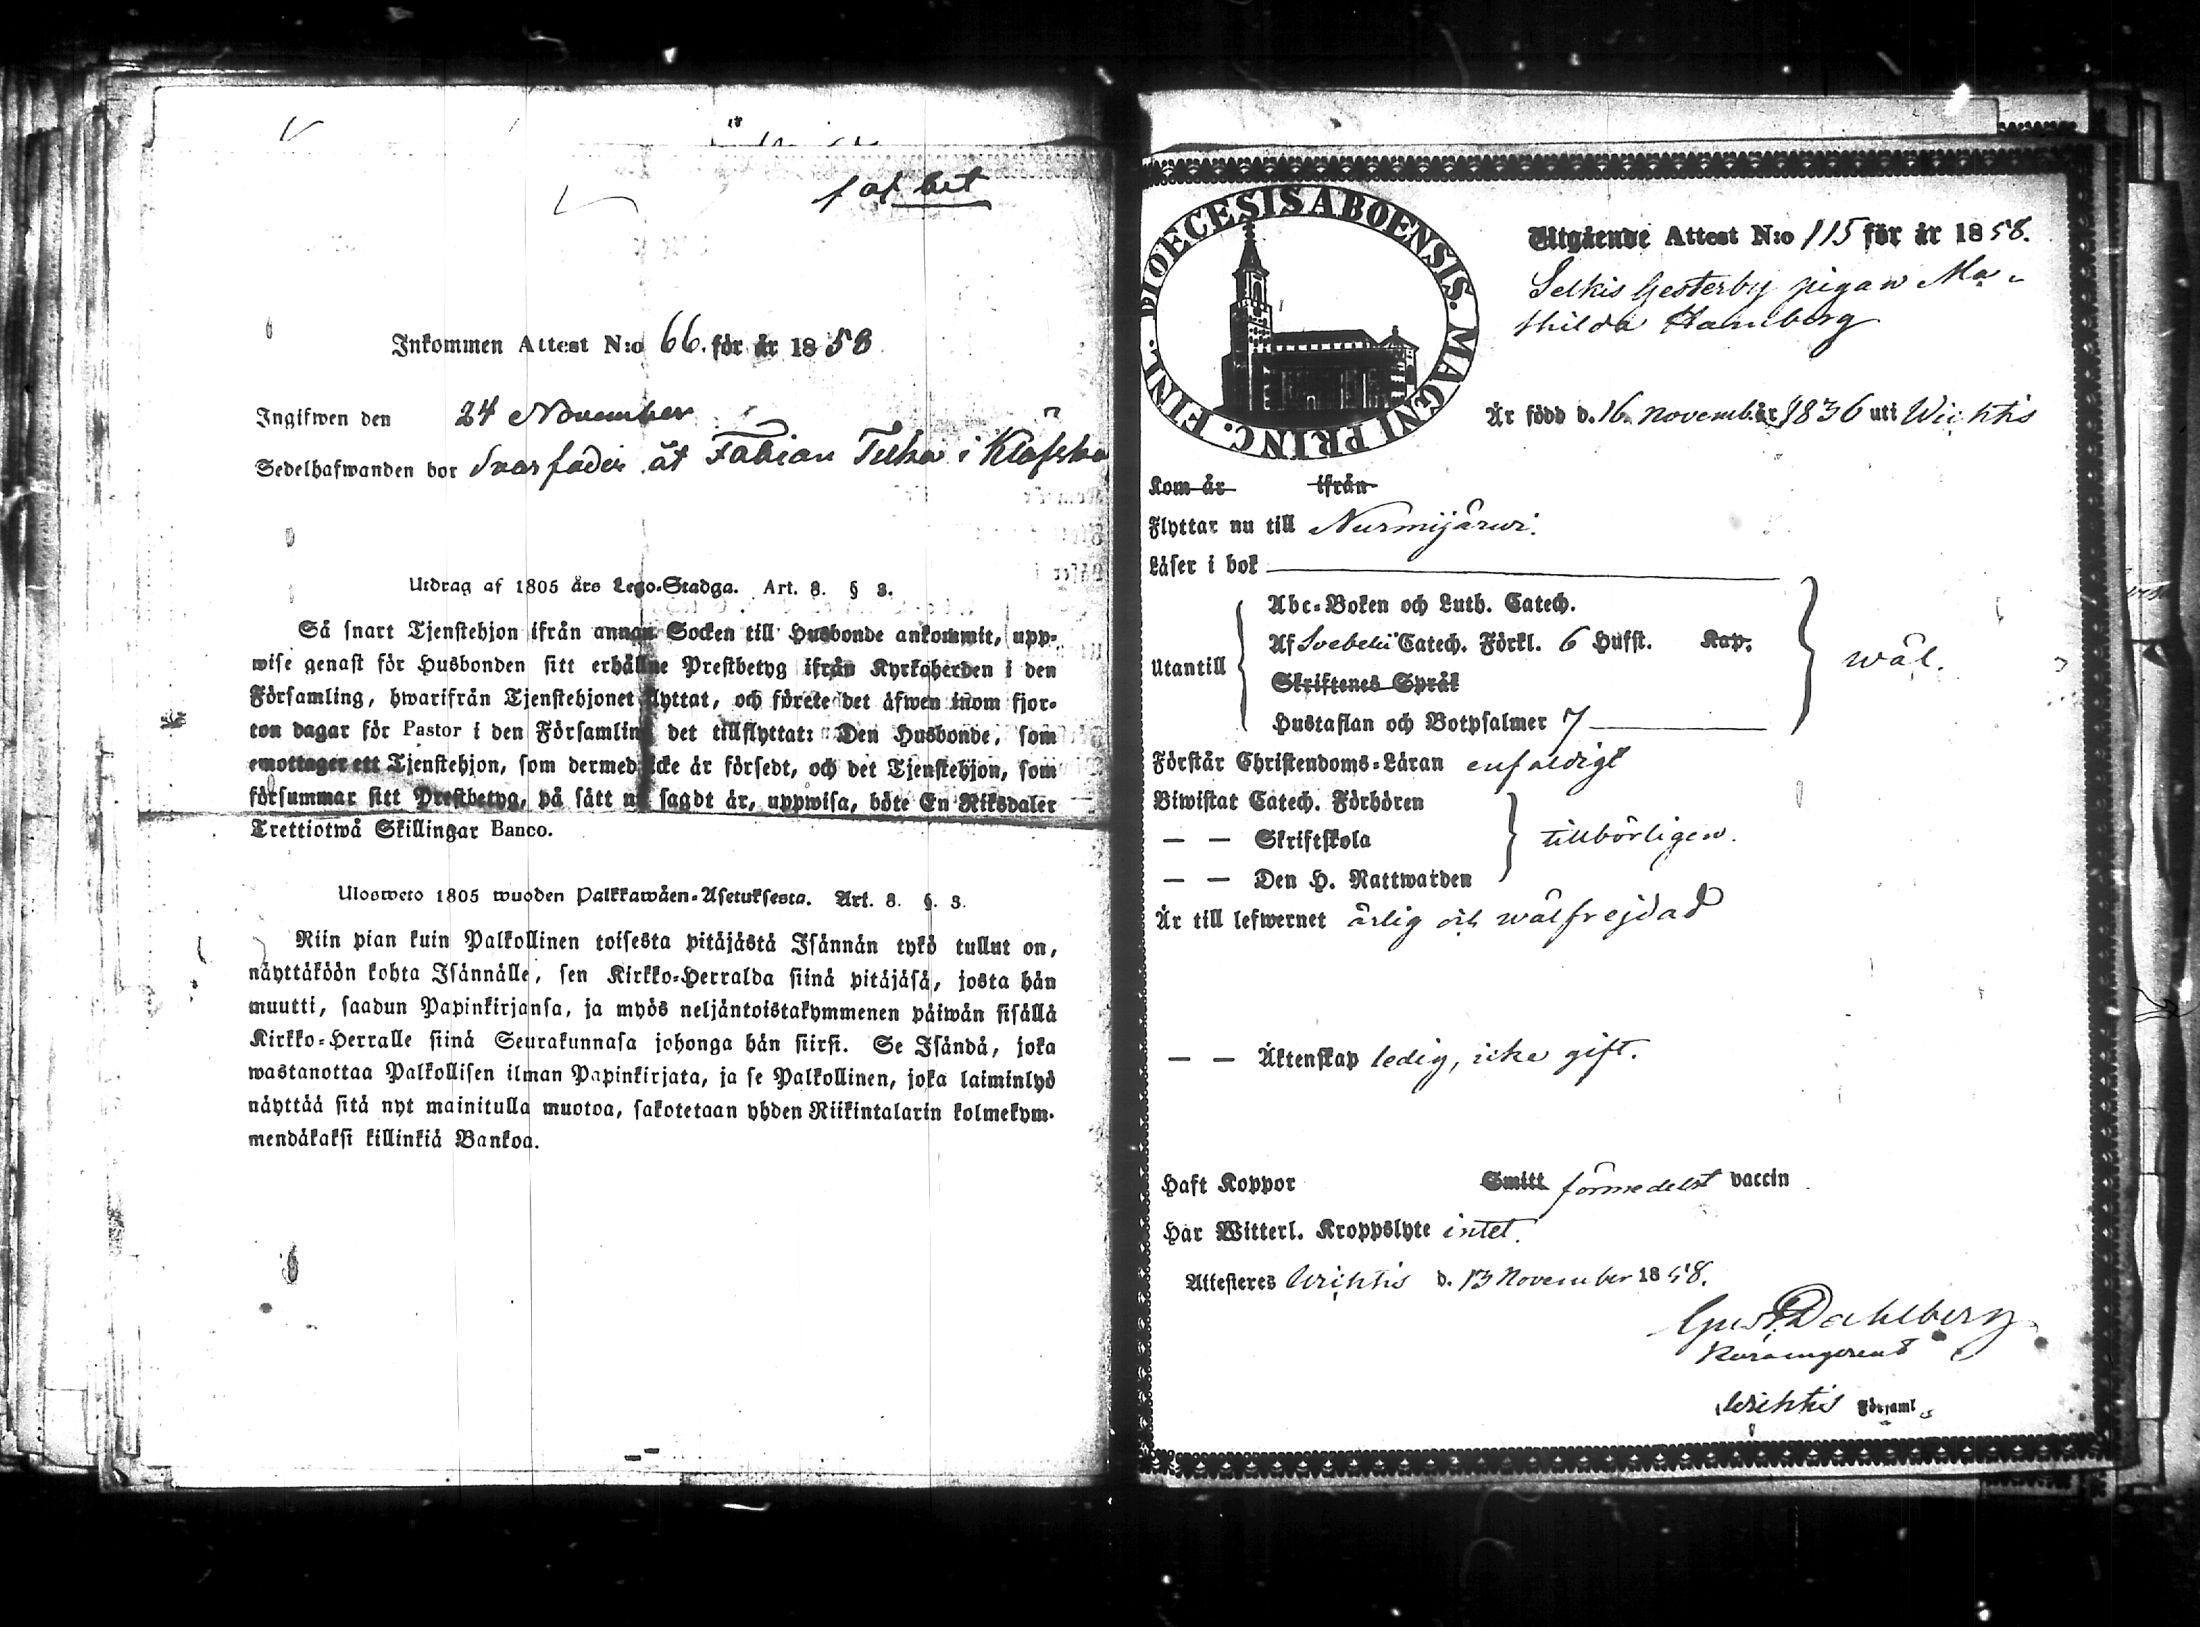 bet
Inkommen Attest N:o 66. för år 1858
Ingifwen den 24 November
Sedelhafwanden bor Svarfader åt Fabian i
Utdrag af 1805 års Lego-Stadga. Art. 8. § 3.
Så snart Tjenstehjon ifrån annan Socken till Husbonde ankommit, upp-
wise genast för Husbonden sitt erhållne Prestbetyg ifrån Kyrkoherden i den
Församling, hwarifrån Tjenstehjonet flyttat, och förete det äfwen inom fjor-
ton dagar för Pastor i den Församling det tillflyttat: Den Husbonde, som
emottager ett Tjenstehjon, som dermed icke är försedt, och det Tjenstehjon, som
försummar sitt Prestbetyg, på sätt nu sagdt är, uppwisa, böte En Riksdaler
Trettiotwå Skillingar Banco.
Ulosweto 1805 wuoden Palkkawäen-Asetuksesta. Art. 8. §. 3.
Niin pian kuin Palkollinen toisesta pitäjästä Isännän tykö tullut on,
näyttäköön kohta Isännälle, sen Kirkko-Herralda siinä pitäjäsä, josta hän
muutti, saadun Papinkirjansa, ja myös neljäntoistakymmenen päiwän sisällä
Kirkko-Herralle siinä Seurakunnasa johonga hän siirsi. Se Isändä, joka
wastanottaa Palkollisen ilman Papinkirjata, ja se Palkollinen, joka laiminlyö
näyttää sitä nyt mainitulla muotoa, sakotetaan yhden Riikintalarin kolmekym-
mendäkaksi killinkiä Bankoa.
DIOECESIS ABOENSIS. MAGNI PRINC. FINL.
Utgående Attest N:o 115 för år 1858.
Selkis Gesterby pigan Ma-
thilda Hamberg
Är född d. 16 november 1836 uti Wichtis
Kom år ifrån
Flyttar nu till Nurmijärwi.
Läser i bok
Abc-Boken och Luth. Catech.
Af Svebelii Catech. Förkl. 6 Hufst. Kap.
Utantill
wäl.
Skriftenes Språk
Hustaflan och Botpsalmer 7
Förstår Christendoms-Läran enfaldigt
Biwistat Catech. Förhören
— — Skriftskola tillbörligen.
— — Den H. Nattwarden
Är till lefwernet ärlig och wälfrejdad
— — Äktenskap ledig, icke gift.
Haft Koppor Smitt förmedelst vaccin
Har Witterl. Kroppslyte intet.
Attesteres Wichtis d. 13 November 1858.
Gust. Dahlberg
Wichtis Församl